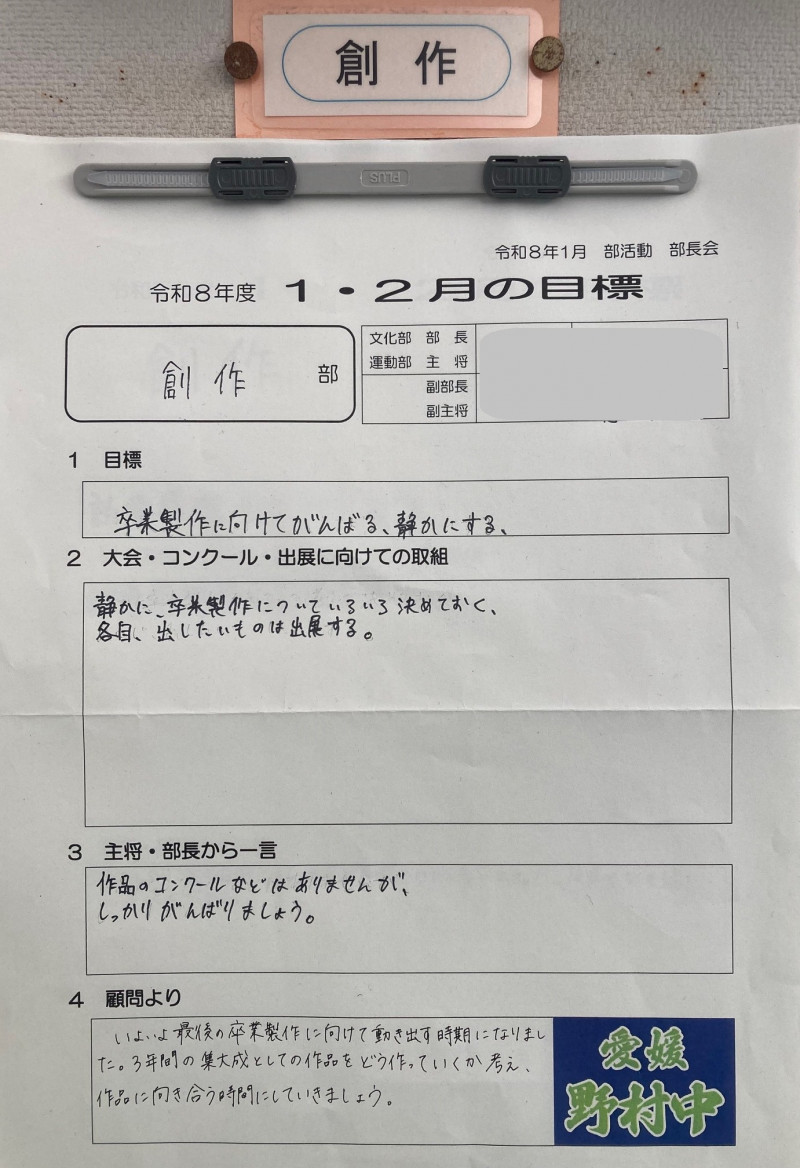 創作
PLUS
令和8年1月 部活動 部長会
令和8年度 1・2月の目標
創作 部
文化部 部長
運動部 主将
副部長
副主将
1 目標
卒業製作に向けてがんばる、静かにする、
2 大会・コンクール・出展に向けての取組
静かに、卒業製作についていろいろ決めておく、
各自、出したいものは出展する。
3 主将・部長から一言
作品のコンクールなどはありませんが、
しっかりがんばりましょう。
4 顧問より
いよいよ最後の卒業製作に向けて動き出す時期になりまし
た。3年間の集大成としての作品をどう作っていくか考え、
作品に向き合う時間にしていきましょう。
愛媛
野村中